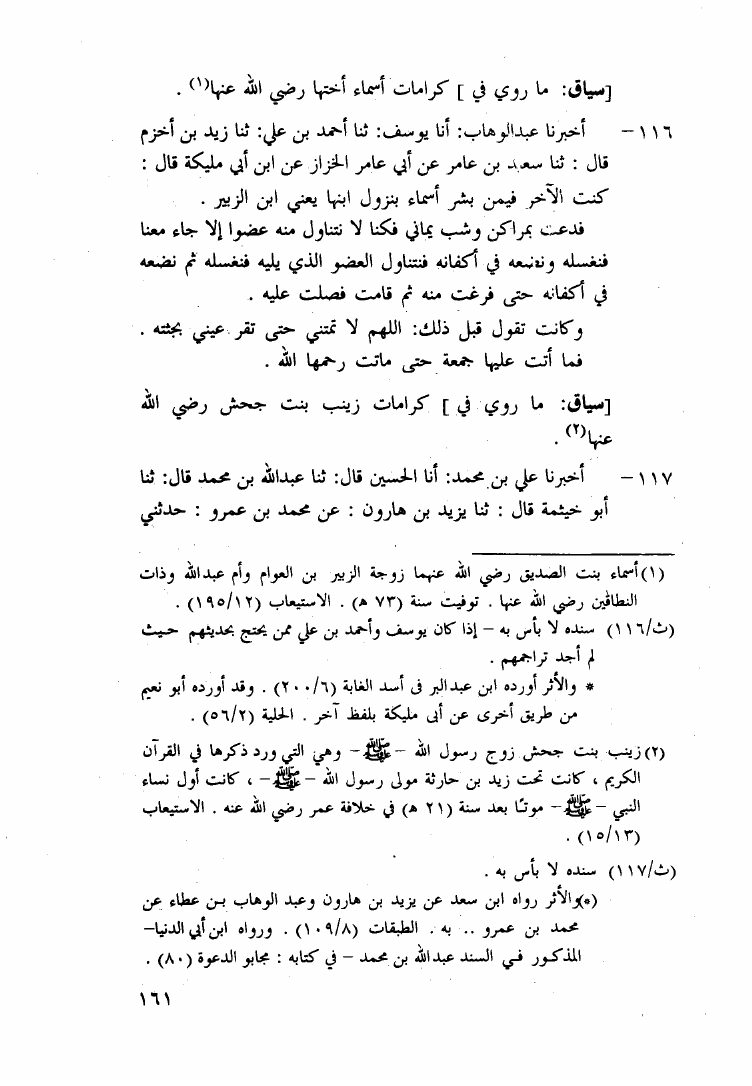 [سياق: ما روي في ] كرامات أسماء أختها رضي الله عنها(١) .
١١٦ – أخبرنا عبدالوهاب: أنا يوسف: ثنا أحمد بن علي: ثنا زيد بن أخزم
قال : ثنا سعيد بن عامر عن أبي عامر الخزاز عن ابن أبي مليكة قال :
كنت الآخر فيمن بشر أسماء بنزول ابنها يعني ابن الزبير .
فدعت بمراكن وشب يماني فكنا لا نتناول منه عضوا إلا جاء معنا
فنغسله ونضعه في أكفانه فنتناول العضو الذي يليه فنغسله ثم نضعه
في أكفانه حتى فرغت منه ثم قامت فصلت عليه .
وكانت تقول قبل ذلك: اللهم لا تمتني حتى تقر عيني بجثته .
فما أتت عليها جمعة حتى ماتت رحمها الله .
[سياق: ما روي في ] كرامات زينب بنت جحش رضي الله
عنها(٢) .
١١٧ – أخبرنا علي بن محمد: أنا الحسين قال: ثنا عبدالله بن محمد قال: ثنا
أبو خيثمة قال : ثنا يزيد بن هارون : عن محمد بن عمرو : حدثني
(١) أسماء بنت الصديق رضي الله عنهما زوجة الزبير بن العوام وأم عبدالله وذات
النطاقين رضي الله عنها . توفيت سنة (٧٣ ه) . الاستيعاب (١٩٥/١٢) .
(ث/١١٦) سنده لا بأس به – إذا كان يوسف وأحمد بن علي ممن يحتج بحديثهم حيث
لم أجد تراجمهم .
* والأثر أورده ابن عبدالبر فى أسد الغابة (٢٠٠/٦) . وقد أورده أبو نعيم
من طريق أخرى عن أبى مليكة بلفظ آخر . الحلية (٥٦/٢) .
(٢) زينب بنت جحش زوج رسول الله – ﷺ – وهي التي ورد ذكرها في القرآن
الكريم ، كانت تحت زيد بن حارثة مولى رسول الله – ﷺ – ، كانت أول نساء
النبي – ﷺ – موتًا بعد سنة (٢١ ه) في خلافة عمر رضي الله عنه . الاستيعاب
(١٥/١٣) .
(ث/١١٧) سنده لا بأس به .
(*) والأثر رواه ابن سعد عن يزيد بن هارون وعبد الوهاب بن عطاء عن
محمد بن عمرو .. به . الطبقات (١٠٩/٨) . ورواه ابن أبي الدنيا–
المذكور في السند عبدالله بن محمد – في كتابه : مجابو الدعوة (٨٠) .
١٦١